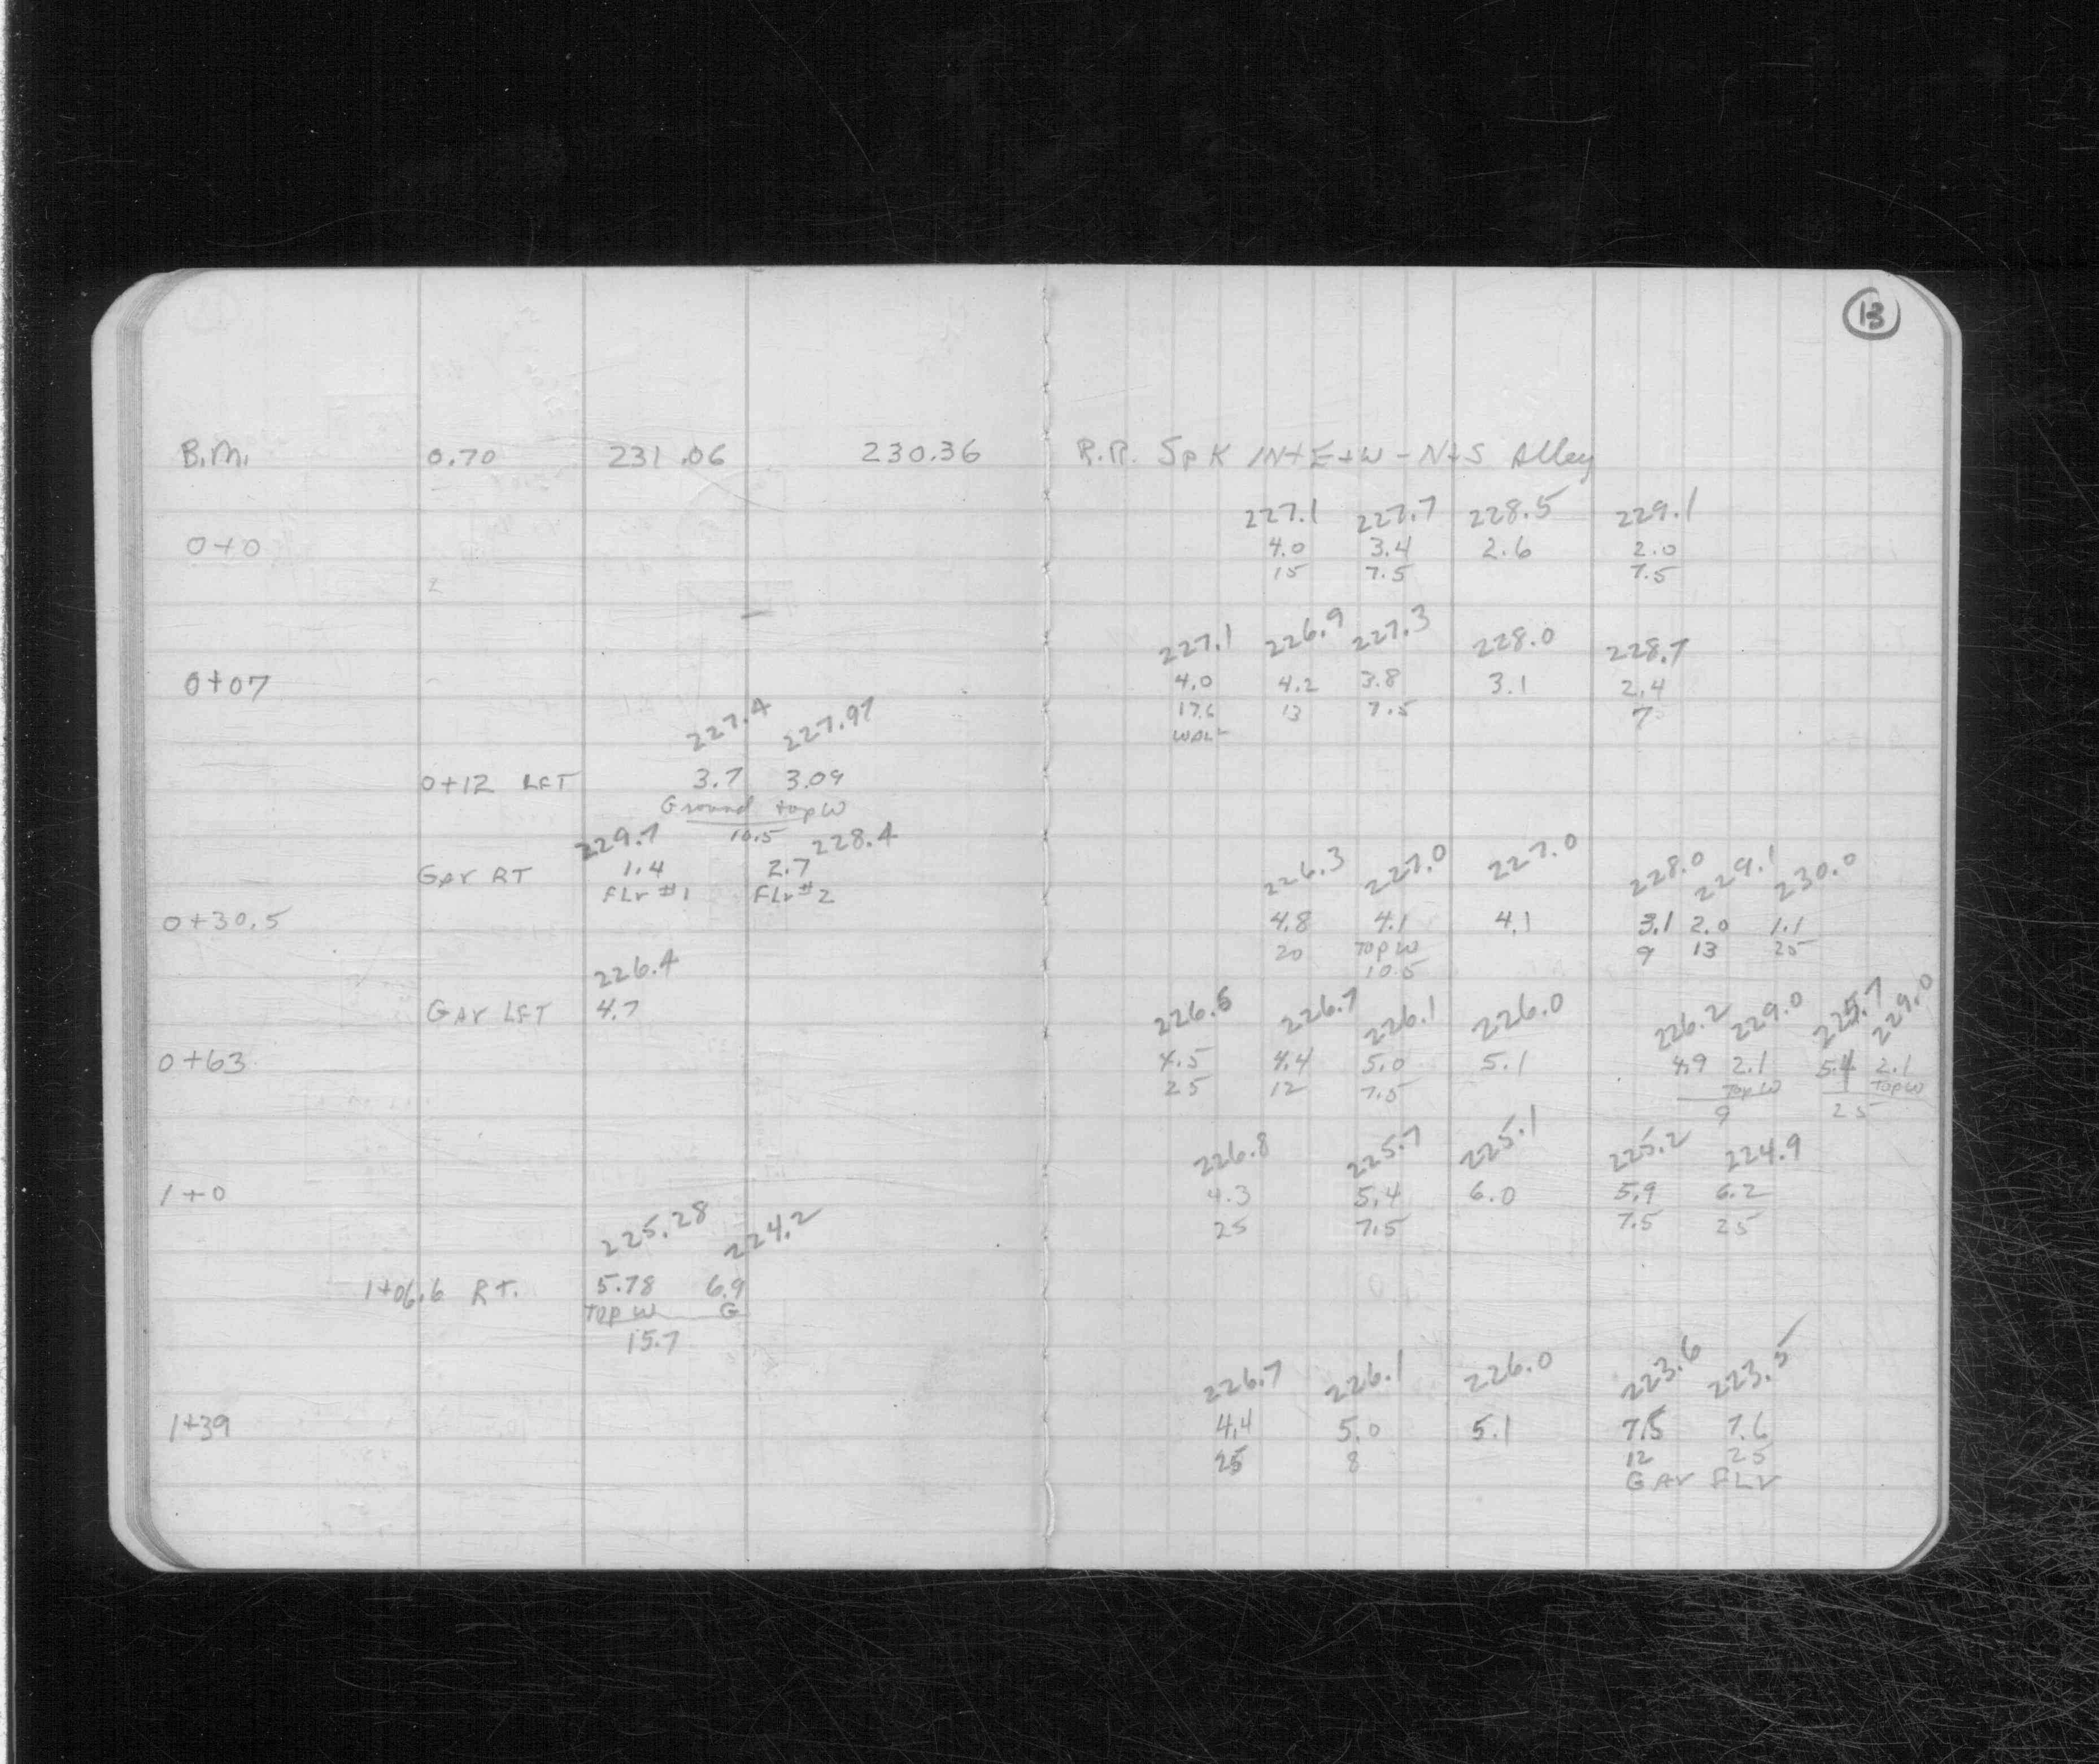 13
B.M. 0.70 231.06 230.36 R.R. Spk INt E+W - N+S Alley
227.1 227.7 228.5 229.1
0+0 4.0 3.4 2.6 2.0
15 7.5 7.5
227.1 226.9 227.3 228.0 228.7
0+07 4.0 4.2 3.8 3.1 2.4
17.6 13 7.5 7
WALL
227.4 227.97
0+12 LFT 3.7 3.09
Ground top W
10.5
229.7 228.4
GAr RT 1.4 2.7
FLr #1 FLr #2
226.3 227.0 227.0 228.0 229.1 230.0
0+30.5 4.8 4.1 4.1 3.1 2.0 1.1
20 Top W 9 13 25
10.5
226.4
GAr LFT 4.7
226.6 226.7 226.1 226.0 226.2 229.0 225.7 229.0
0+63 4.5 4.4 5.0 5.1 4.9 2.1 5.4 2.1
25 12 7.5 Top W Top W
9 25
226.8 225.7 225.1 225.2 224.9
1+0 4.3 5.4 6.0 5.9 6.2
25 7.5 7.5 25
225.28 224.2
1+06.6 RT. 5.78 6.9
Top W G
15.7
226.7 226.1 226.0 223.6 223.5
1+39 4.4 5.0 5.1 7.5 7.6
25 8 12 25
GAr FLr